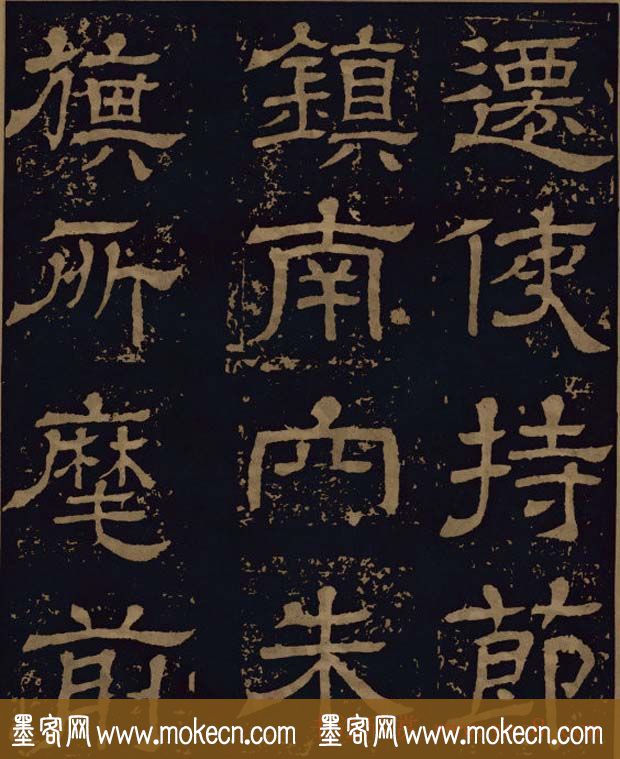 遷使持節
鎮南内朱
旗所麾前
墨客网 www.mokecn.com 墨客网 www.mokecn.com